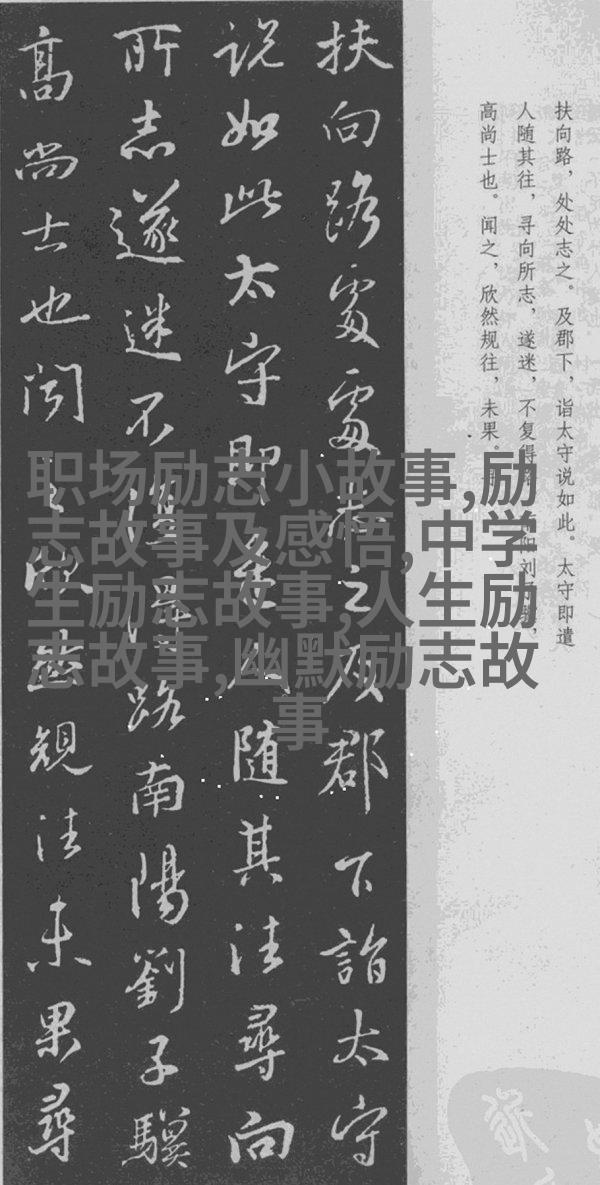 扶向路，处处志之。及郡下，诣太守说如此。太守即遣
人随其往，寻向所志，遂迷，不复得阳刘
高尚士也。闻之，欣然规往，未果。
扶向路處處志之及郡下詣太守
说如此太守即遣人随其往尋向
所志遂迷不復得路南陽劉子驥
高尚士也闻之欣然規往未果尋
职场励志小故事,励
志故事及感悟,中学
生励志故事,人生励
志故事,幽默励志故
事